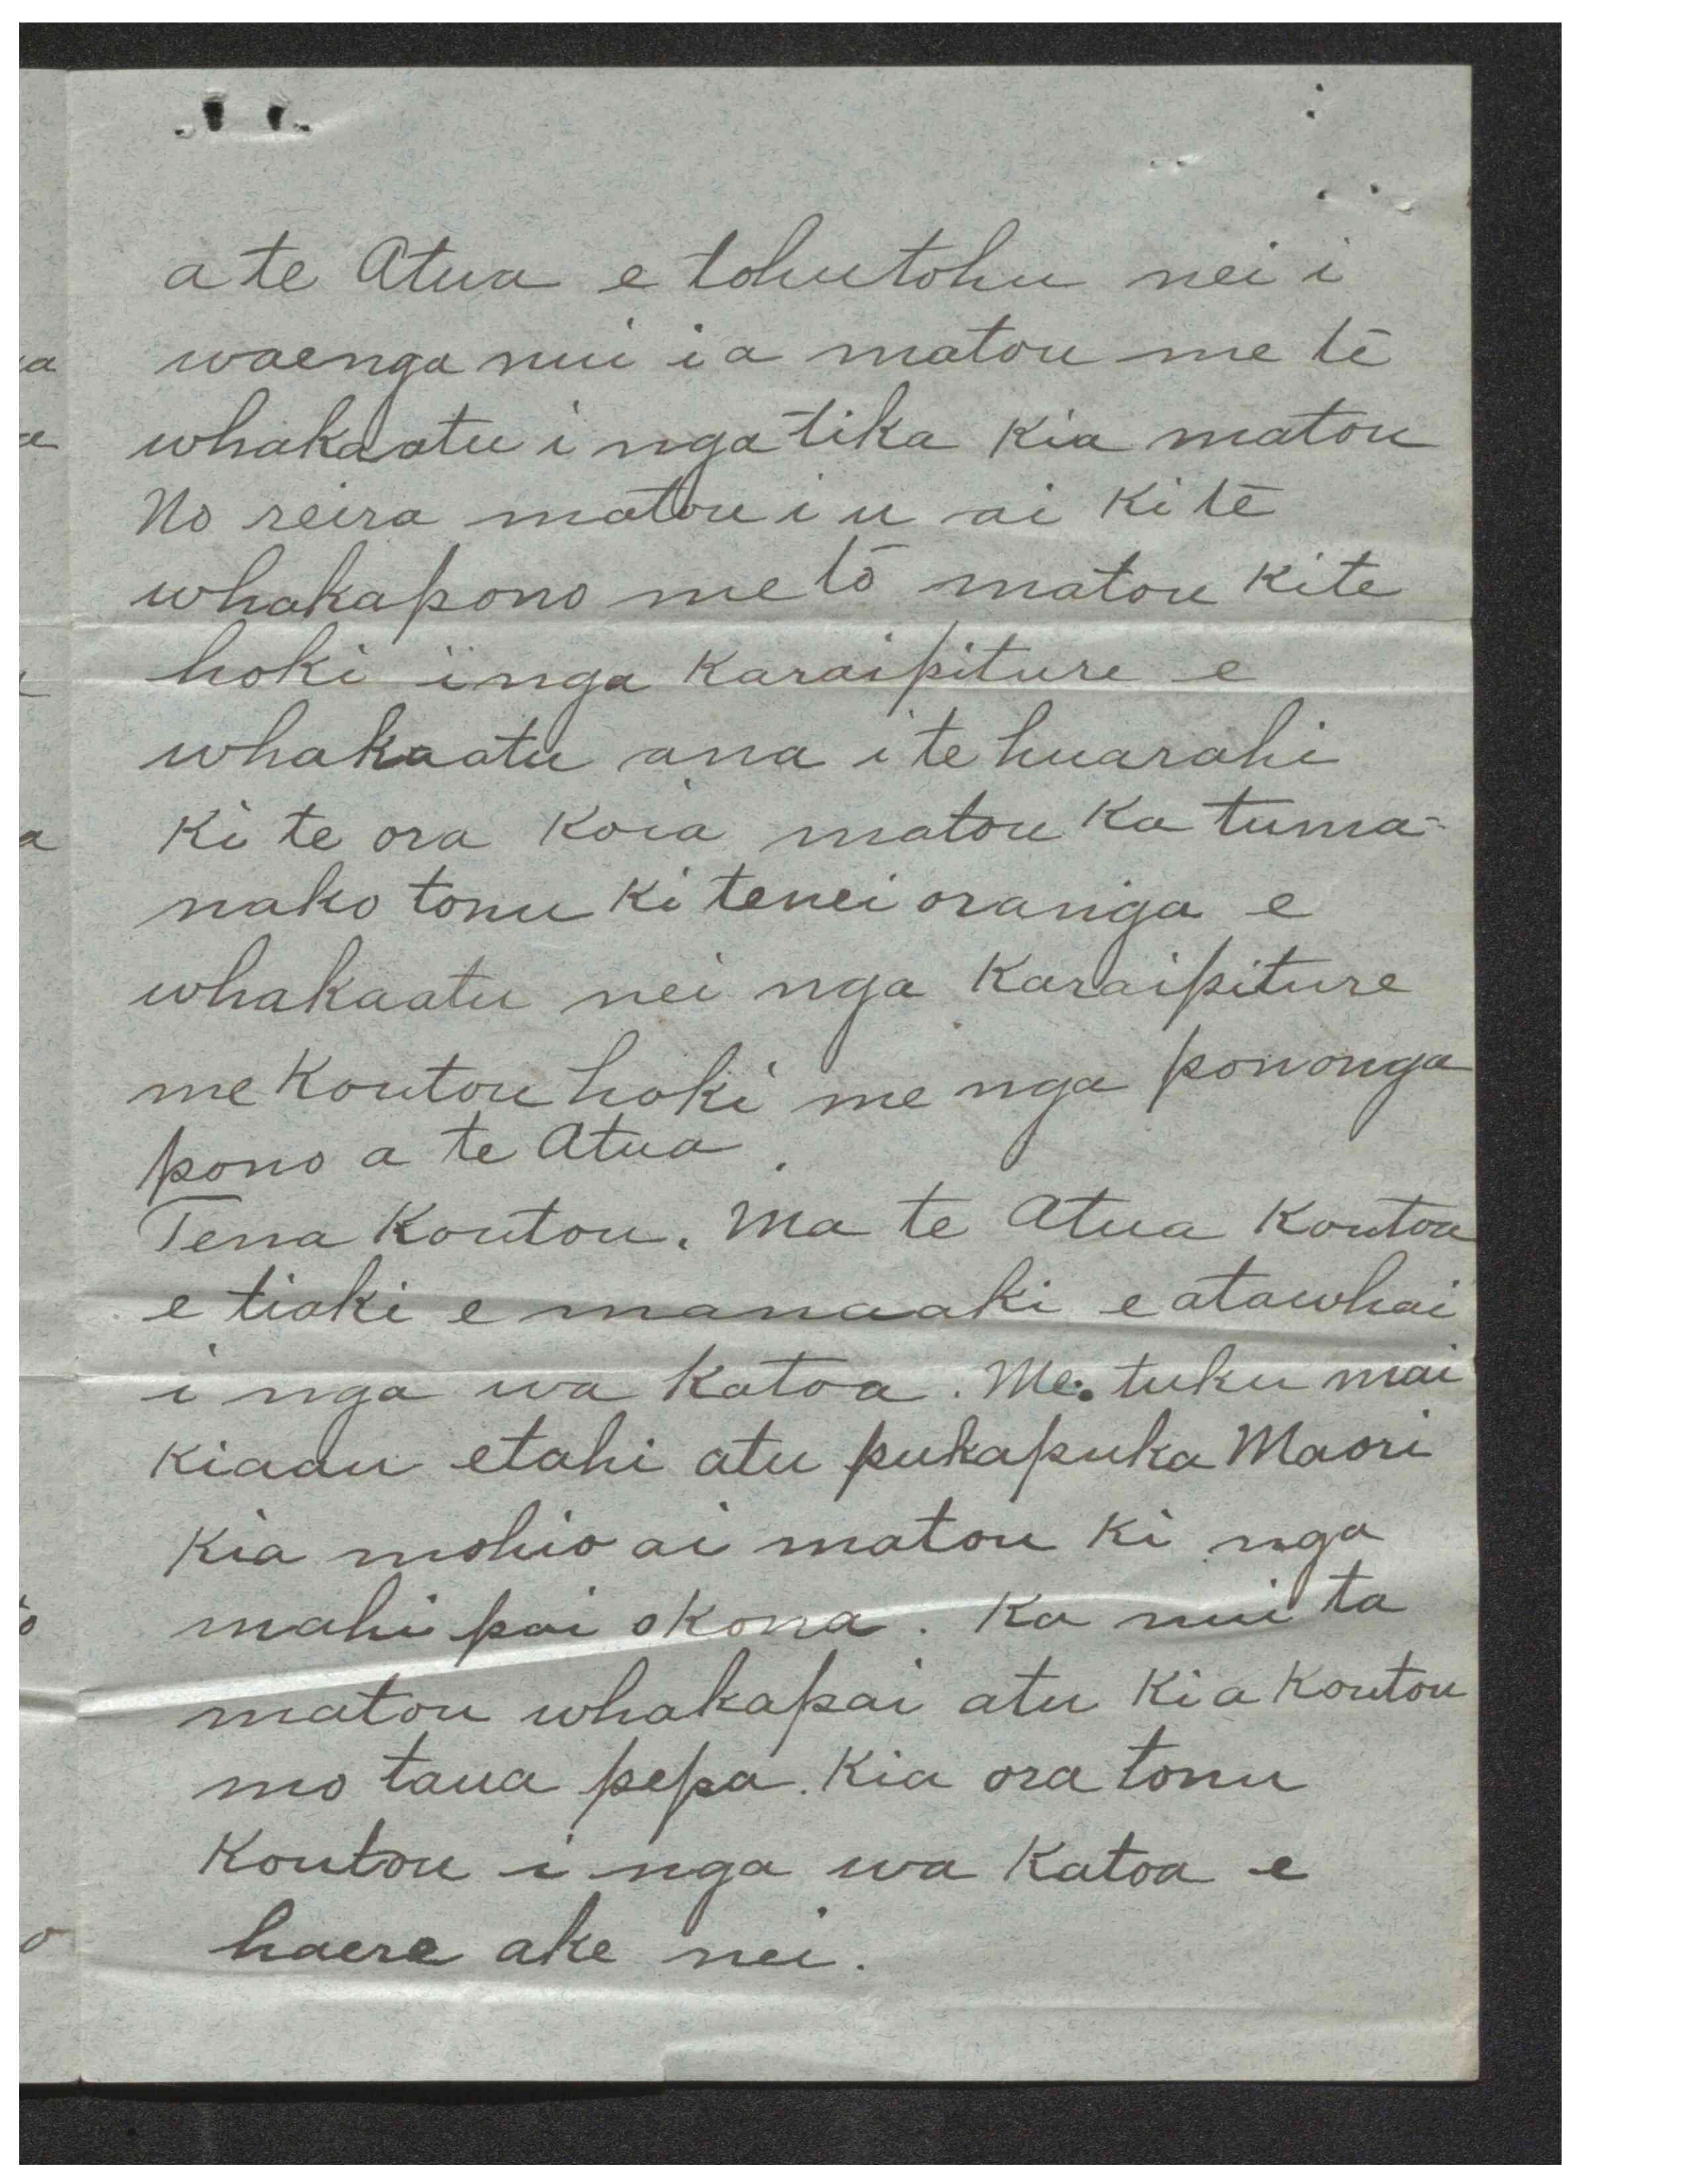 a te Atua e tohutohu nei i
waenga nui i a matou me te
whakaatu i nga tika kia matou
No reira matou i u ai ki te
whakapono me to matou kite
hoki i nga Karaipiture e
whakaatu ana i te huarahi
ki te ora koia matou ka tuma-
nako tonu ki tenei oranga e
whakaatu nei nga Karaipiture
me koutou hoki me nga pononga
pono a te Atua.
Tena koutou. Ma te Atua koutou
e tiaki e manaaki e atawhai
i nga wa katoa. Me tuku mai
kiaau etahi atu pukapuka Maori
kia mohio ai matou ki nga
mahi pai okona. Ka nui ta
matou whakapai atu kia koutou
mo taua pepa. Kia ora tonu
koutou i nga wa katoa e
haere ake nei.